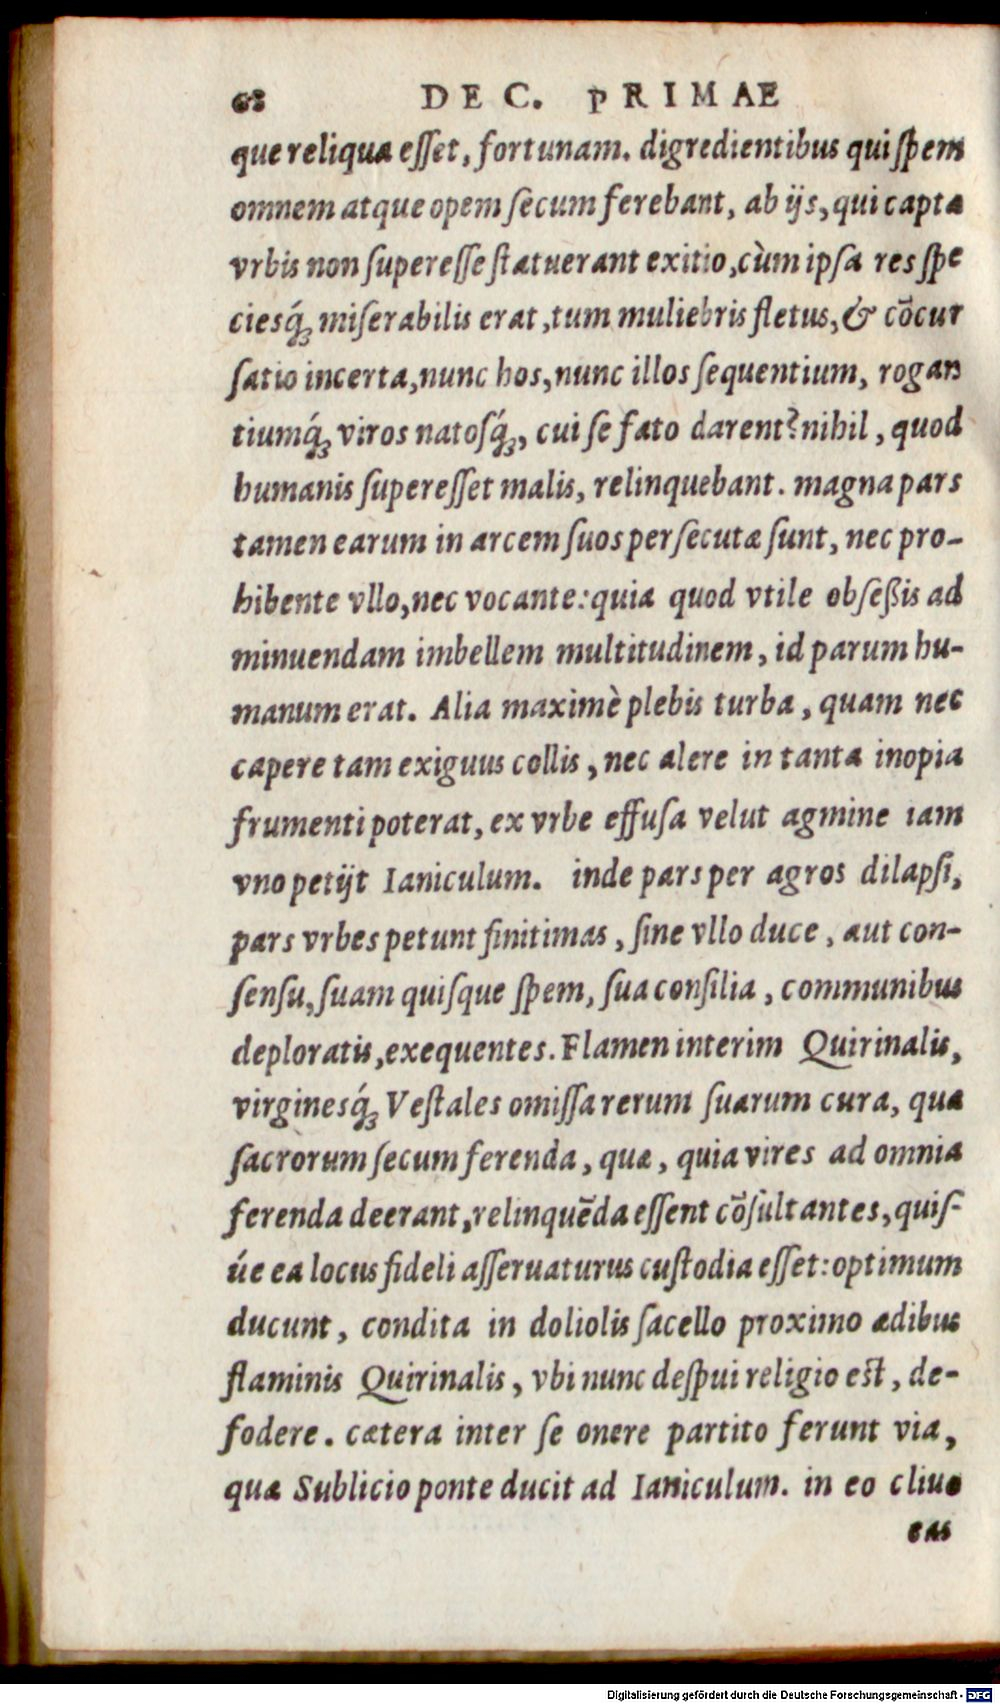 68 DEC. PRIMAE
que reliqua eſſet, fortunam. digredientibus qui ſpem
omnem atque opem ſecum ferebant, ab ijs, qui capta
vrbis non ſupereſſe ſtatuerant exitio, cùm ipſa res ſpe
cieśq; miſerabilis erat, tum muliebris fletus, & cōcur
ſatio incerta, nunc hos, nunc illos ſequentium, rogan
tiumq́; viros natoſq́;, cui ſe fato darent? nihil, quod
humanis ſupereſſet malis, relinquebant. magna pars
tamen earum in arcem ſuos perſecutæ ſunt, nec pro-
hibente vllo, nec vocante: quia quod vtile obſeßis ad
minuendam imbellem multitudinem, id parum hu-
manum erat. Alia maximè plebis turba, quam nec
capere tam exiguus collis, nec alere in tanta inopia
frumenti poterat, ex vrbe effuſa velut agmine iam
vno petijt Ianiculum. inde pars per agros dilapſi,
pars vrbes petunt finitimas, ſine vllo duce, aut con-
ſenſu, ſuam quiſque ſpem, ſua conſilia, communibus
deploratis, exequentes. Flamen interim Quirinalis,
virgineśq; Veſtales omiſſa rerum ſuarum cura, quæ
ſacrorum ſecum ferenda, quæ, quia vires ad omnia
ferenda deerant, relinquēda eſſent cōſultantes, quiſ-
úe ea locus fideli aſſeruaturus cuſtodia eſſet: optimum
ducunt, condita in doliolis ſacello proximo ædibus
flaminis Quirinalis, vbi nunc deſpui religio eſt, de-
fodere. cætera inter ſe onere partito ferunt via,
quæ Sublicio ponte ducit ad Ianiculum. in eo cliuo
eas
Digitalisierung gefördert durch die Deutsche Forschungsgemeinschaft - DFG